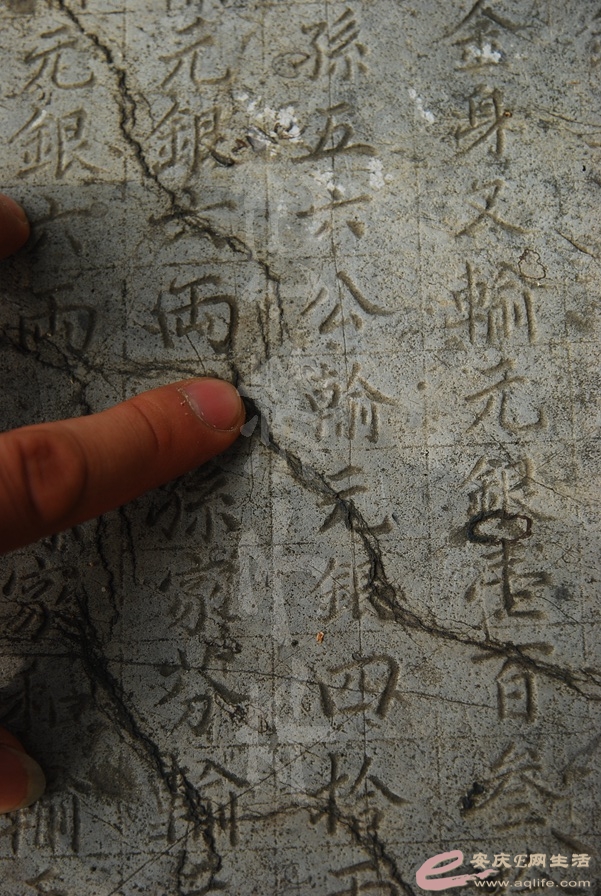 金身又輸元銀壹百叁
孫五六公輸元銀四拾
元銀六兩孫家芬輸
元銀六兩家輸
安庆E网生活
www.aqlife.com